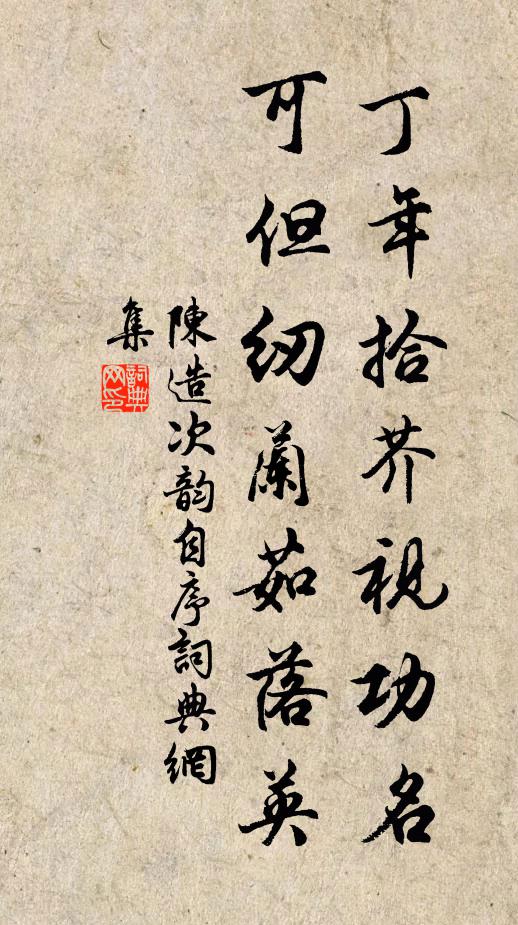 丁年拾芥視功名
可但紉蘭茹落英
陳造次韵自序詞典網
集
詞典
网印